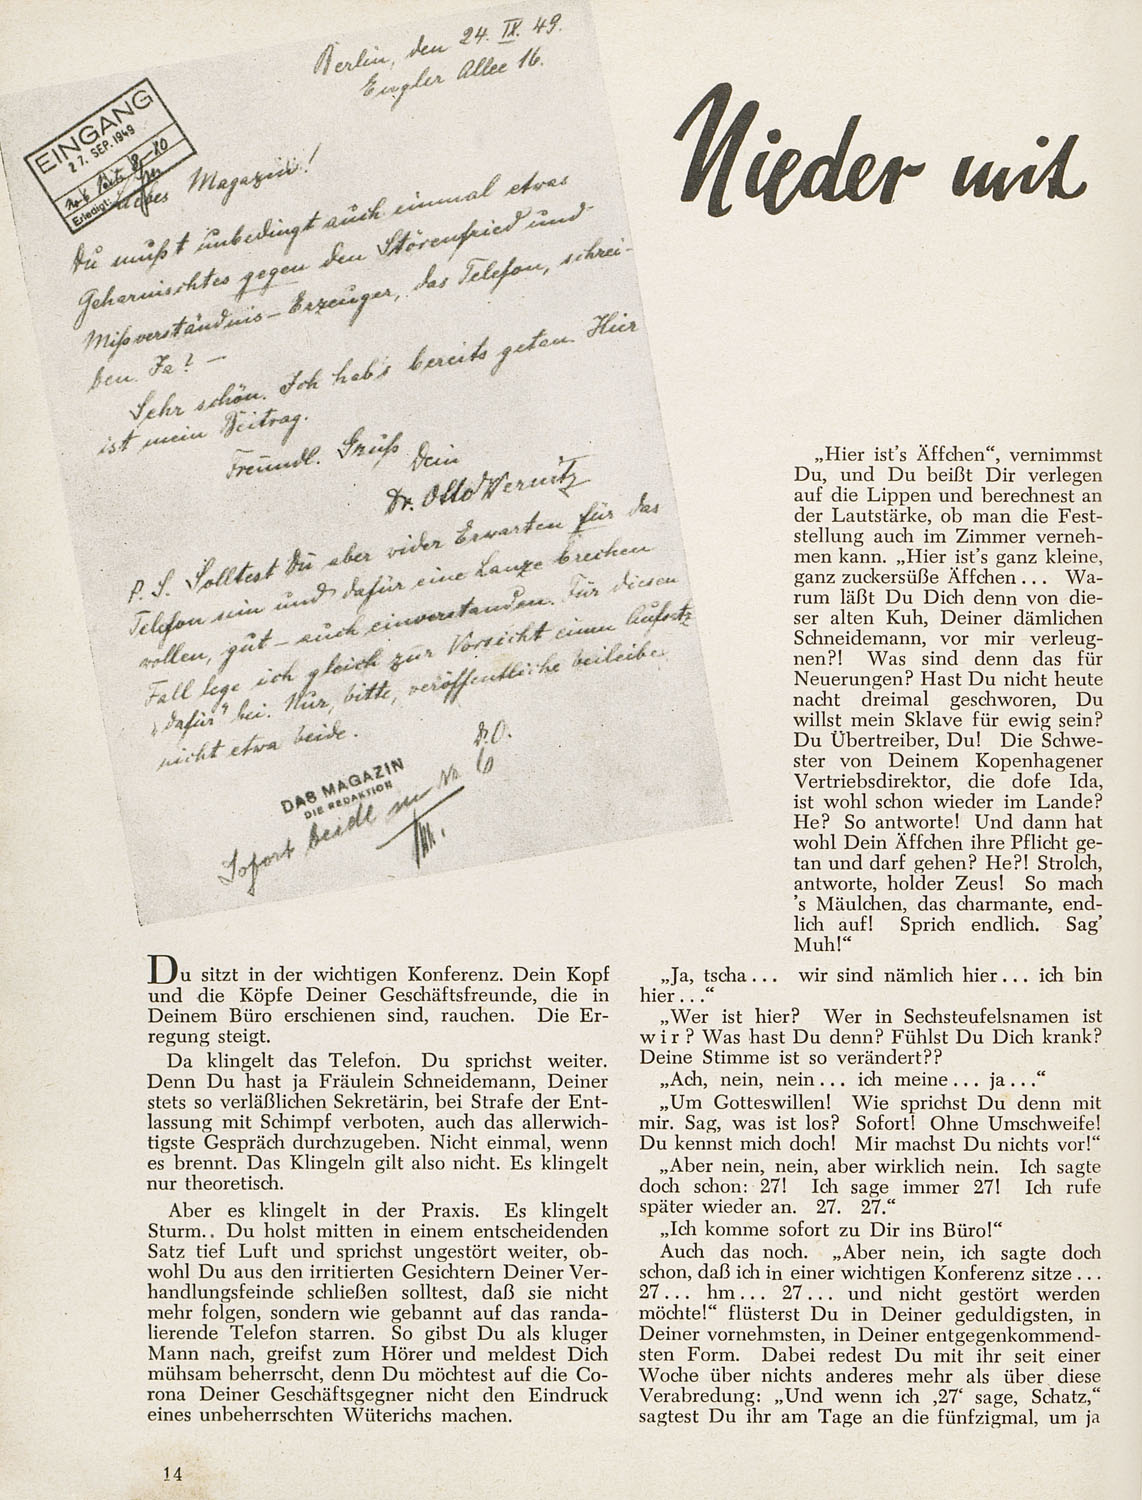 Berlin, den 24. IX. 49.
Engler Allee 16.
EINGANG
27. SEP. 1949
Erledigt:
Liebes Magazin!
Du mußt unbedingt auch einmal etwas
Geharnischtes gegen den Störenfried und
Mißverständnis-Erzeuger, das Telefon, schrei-
ben. Ja? —
Sehr schön. Ich hab's bereits getan. Hier
ist mein Beitrag.
Freundl. Gruß
Dein
Dr. Otto Wernitz
P. S. Solltest Du aber wider Erwarten für das
Telefon sein und dafür eine Lanze brechen
wollen, gut – auch einverstanden. Für diesen
Fall lege ich gleich zur Vorsicht einen Aufsatz
„dafür“ bei. Nur, bitte, veröffentliche beileibe
nicht etwa beide.
D.O.
DAS MAGAZIN
DIE REDAKTION
Sofort beide Nr 6
Nieder mit
„Hier ist's Äffchen“, vernimmst
Du, und Du beißt Dir verlegen
auf die Lippen und berechnest an
der Lautstärke, ob man die Fest-
stellung auch im Zimmer verneh-
men kann. „Hier ist's ganz kleine,
ganz zuckersüße Äffchen... Wa-
rum läßt Du Dich denn von die-
ser alten Kuh, Deiner dämlichen
Schneidemann, vor mir verleug-
nen?! Was sind denn das für
Neuerungen? Hast Du nicht heute
nacht dreimal geschworen, Du
willst mein Sklave für ewig sein?
Du Übertreiber, Du! Die Schwe-
ster von Deinem Kopenhagener
Vertriebsdirektor, die dofe Ida,
ist wohl schon wieder im Lande?
He? So antworte! Und dann hat
wohl Dein Äffchen ihre Pflicht ge-
tan und darf gehen? He?! Strolch,
antworte, holder Zeus! So mach
's Mäulchen, das charmante, end-
lich auf! Sprich endlich. Sag'
Muh!“
Du sitzt in der wichtigen Konferenz. Dein Kopf
und die Köpfe Deiner Geschäftsfreunde, die in
Deinem Büro erschienen sind, rauchen. Die Er-
regung steigt.
Da klingelt das Telefon. Du sprichst weiter.
Denn Du hast ja Fräulein Schneidemann, Deiner
stets so verläßlichen Sekretärin, bei Strafe der Ent-
lassung mit Schimpf verboten, auch das allerwich-
tigste Gespräch durchzugeben. Nicht einmal, wenn
es brennt. Das Klingeln gilt also nicht. Es klingelt
nur theoretisch.
Aber es klingelt in der Praxis. Es klingelt
Sturm.. Du holst mitten in einem entscheidenden
Satz tief Luft und sprichst ungestört weiter, ob-
wohl Du aus den irritierten Gesichtern Deiner Ver-
handlungsfeinde schließen solltest, daß sie nicht
mehr folgen, sondern wie gebannt auf das randa-
lierende Telefon starren. So gibst Du als kluger
Mann nach, greifst zum Hörer und meldest Dich
mühsam beherrscht, denn Du möchtest auf die Co-
rona Deiner Geschäftsgegner nicht den Eindruck
eines unbeherrschten Wüterichs machen.
„Ja, tscha... wir sind nämlich hier... ich bin
hier...“
„Wer ist hier? Wer in Sechsteufelsnamen ist
wir? Was hast Du denn? Fühlst Du Dich krank?
Deine Stimme ist so verändert??
„Ach, nein, nein... ich meine... ja...“
„Um Gotteswillen! Wie sprichst Du denn mit
mir. Sag, was ist los? Sofort! Ohne Umschweife!
Du kennst mich doch! Mir machst Du nichts vor!“
„Aber nein, nein, aber wirklich nein. Ich sagte
doch schon: 27! Ich sage immer 27! Ich rufe
später wieder an. 27. 27.“
„Ich komme sofort zu Dir ins Büro!“
Auch das noch. „Aber nein, ich sagte doch
schon, daß ich in einer wichtigen Konferenz sitze...
27... hm... 27... und nicht gestört werden
möchte!“ flüsterst Du in Deiner geduldigsten, in
Deiner vornehmsten, in Deiner entgegenkommend-
sten Form. Dabei redest Du mit ihr seit einer
Woche über nichts anderes mehr als über diese
Verabredung: „Und wenn ich ‚27‘ sage, Schatz,“
sagtest Du ihr am Tage an die fünfzigmal, um ja
14